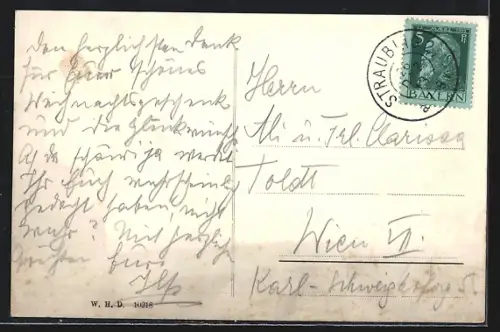 den herzlichsten Dank
für Euer schönes
Weihnachtsgeschenk
und die Glückwünsche
Ihr Euch
gedacht haben, nicht
wahr? Mit herzlichen
Grüßen Eure
Ilse
W. H. D. 10218
STRAUBING
5
BAYERN
Herrn
Ali u. Frl. Clarissa
Toldt
Wien VI.
Karl-Schweighoferg. 5